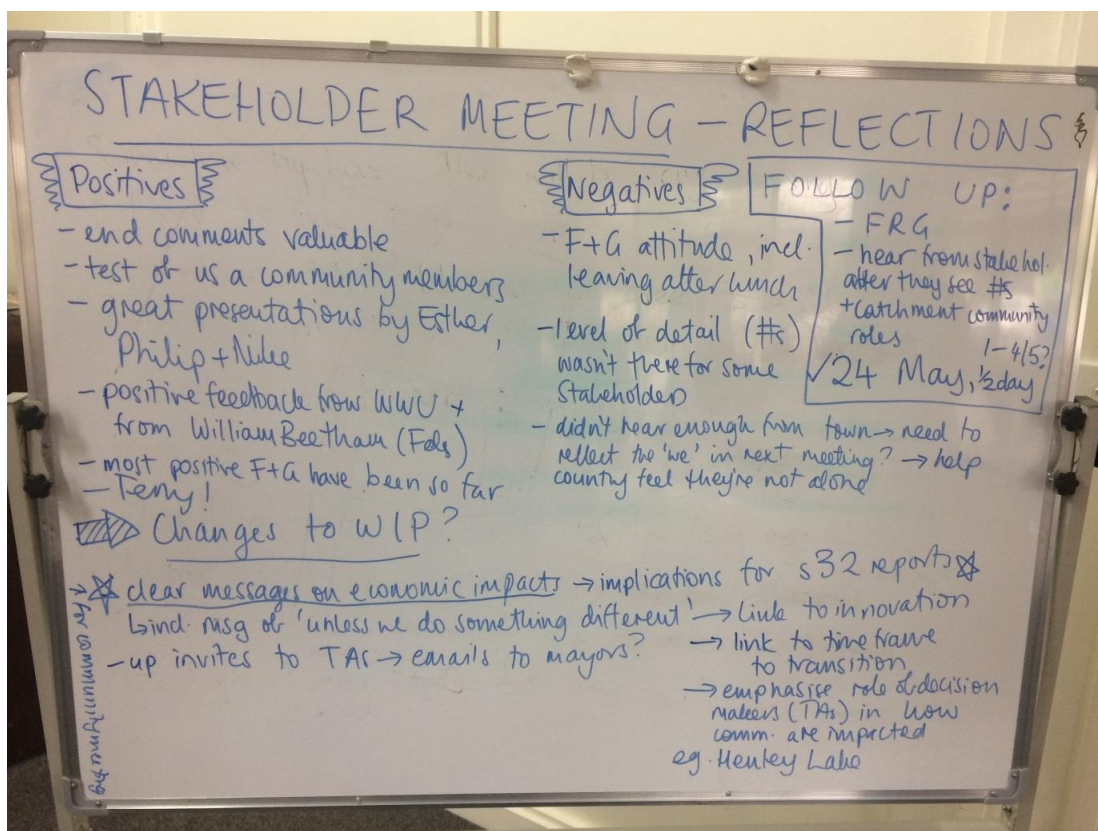 STAKEHOLDER MEETING – REFLECTIONS
Positives
- end comments valuable
- test of us a community members
- great presentations by Esther,
Philip + Mike
- positive feedback from WWU +
from William Beetham (Feds)
- most positive F+G have been so far
- Terry!
Negatives
- F+G attitude, incl.
leaving after lunch
- level of detail (#s)
wasn't there for some
stakeholders
- didn't hear enough from town → need to
reflect the 'we' in next meeting? → help
country feel they're not alone
FOLLOW UP:
- FRG
- hear from stakehol.
after they see #s
+ catchment community
roles
1-4/5?
✓24 May, ½ day
Changes to WIP?
☆ clear messages on economic impacts → implications for s32 reports ☆
↳ incl. msg of 'unless we do something different' → Link to innovation
→ link to time frame
to transition
→ emphasise role of decision
makers (TAs) in how
comm. are impacted
eg. Henley Lake
- up invites to TAs → emails to mayors?
→ for community mtg